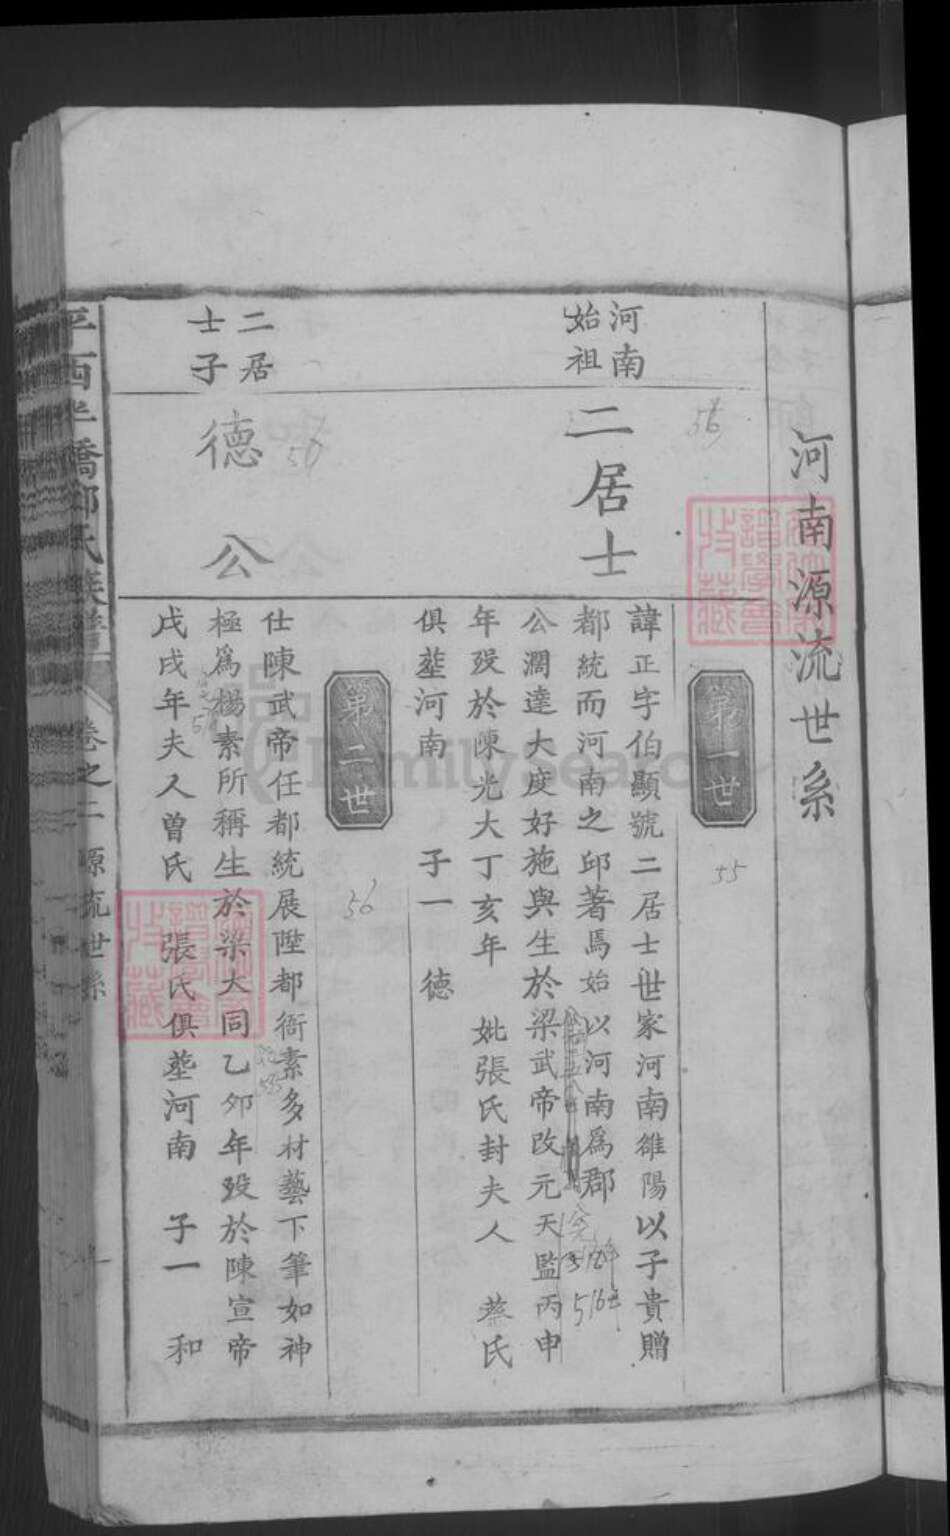 河南源流世系
第一世
河南
始祖
二居士
諱正字伯顯號二居士世家河南雒陽以子貴贈
都統而河南之邱著焉始以河南為郡
公濶達大度好施與生於梁武帝改元天監丙申
年歿於陳光大丁亥年 妣張氏封夫人 蔡氏
俱塟河南 子一 德
第二世
二居
士子
德公
仕陳武帝任都統展陛都衙素多材藝下筆如神
極為楊素所稱生於梁大同乙夘年歿於陳宣帝
戊戌年夫人曾氏 張氏俱塟河南 子一 和
卷之二 源流世系
55
56
56
516
FamilySearch